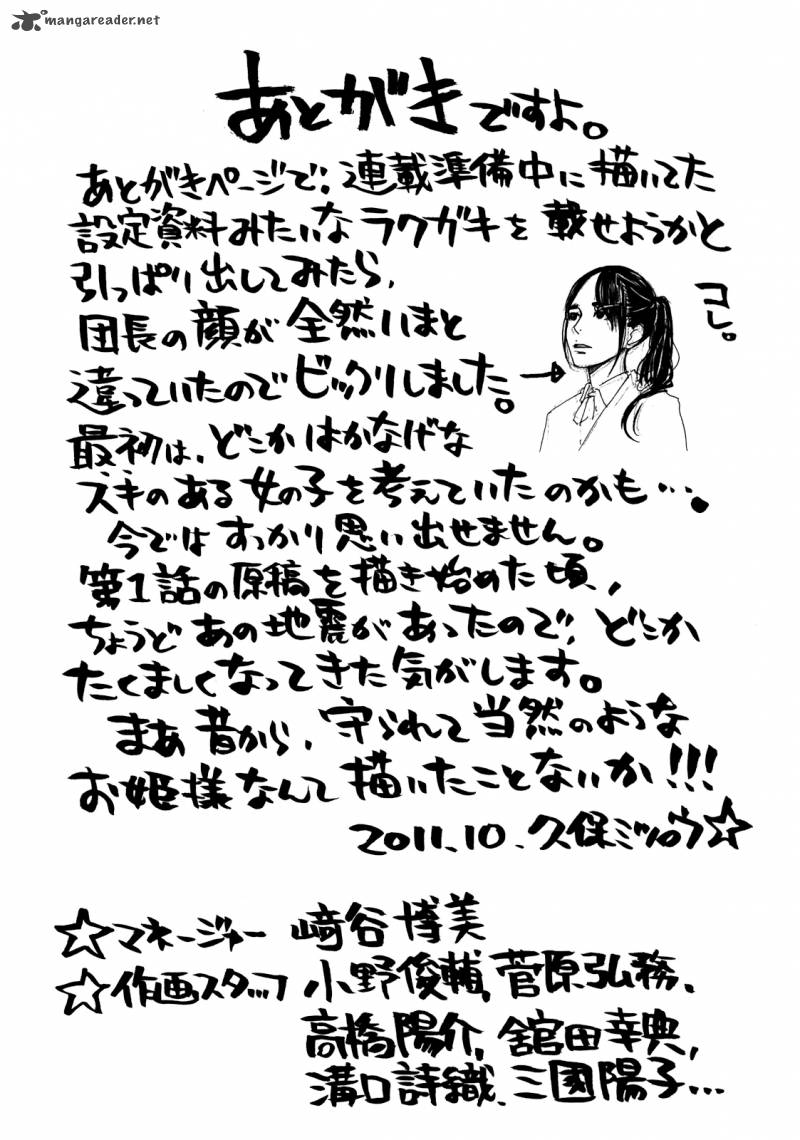 mangareader.net
あとがきですよ。
あとがきページで、連載準備中に描いてた
設定資料みたいなラクガキを載せようかと
引っぱり出してみたら、
団長の顔が全然いまと
違っていたのでビックリしました。
コレ。
最初は、どこかはかなげな
スキのある女の子を考えていたのかも…。
今ではすっかり思い出せません。
第1話の原稿を描き始めた頃、
ちょうどあの地震があったので、どこか
たくましくなってきた気がします。
まあ昔から、守られて当然のような
お姫様なんて描いたことないか!!!
2011.10.久保ミツロウ☆
☆マネージャー 﨑谷博美
☆作画スタッフ 小野俊輔、菅原弘務、
高橋陽介、舘田幸典、
溝口詩織、三國陽子…